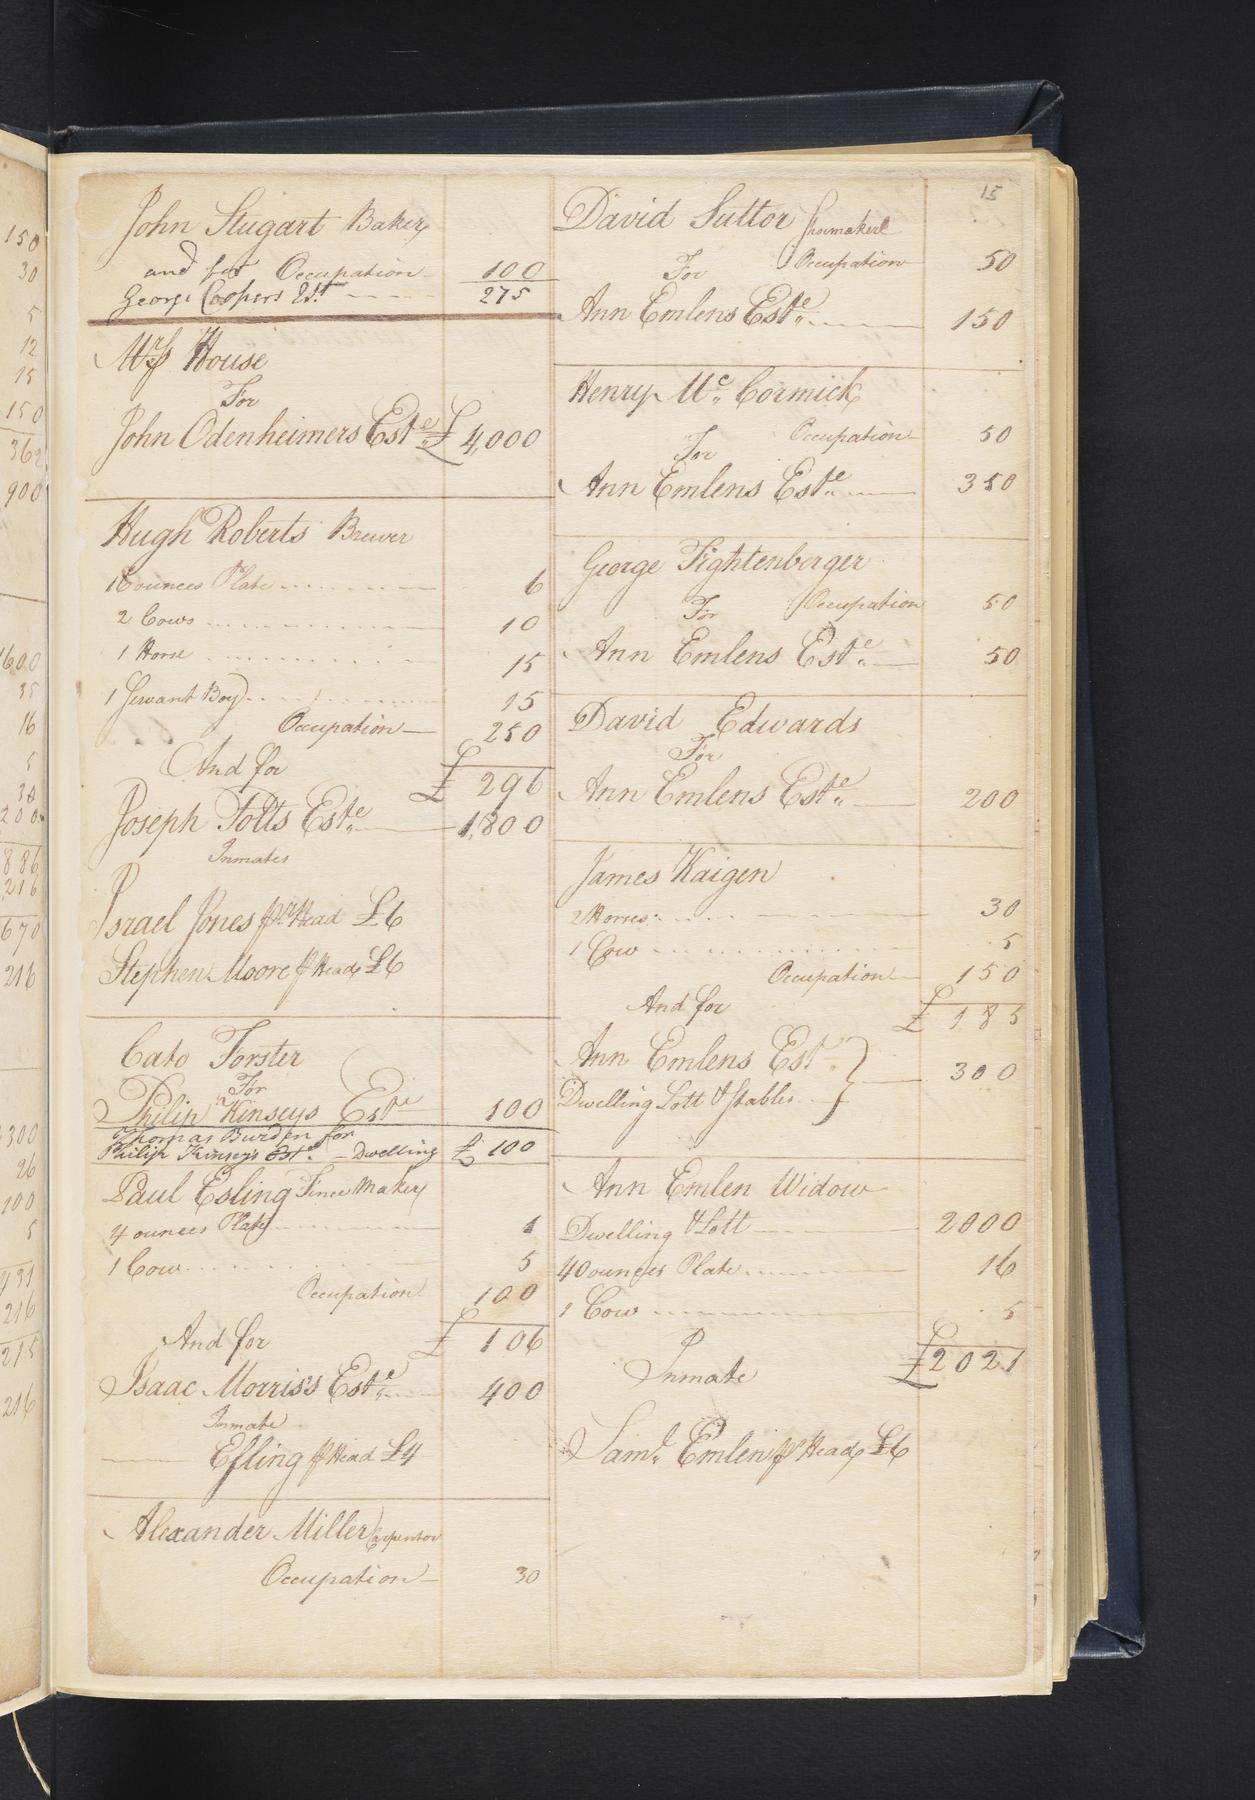 15
John Stugart Baker
and for Occupation 100
George Coopers Est 275
Mrs House
For
John Odenheimers Este £ 4,000
Hugh Roberts Brewer
16 ounces Plate 6
2 Cows 10
1 Horse 15
1 Servant Boy 15
Occupation 250
And for £ 296
Joseph Potts Este 1,800
Inmates
Israel Jones pr Head £6
Stephen Moore pr Head £6
Cato Forster
For
Philip Kinseys Este 100
Thomas Burden for
Philip Kinseys Este. - Dwelling £ 100
Paul Esling Maker
4 ounces Plate 1
1 Cow 5
Occupation 100
And for £ 106
Isaac Morris's Este 400
Inmate
Esling pr Head £4
Alexander Miller Carpentor
Occupation 30
David Suttor Shoemaker
Occupation 50
For
Ann Emlens Este 150
Henry Mc Cormick
Occupation 50
For
Ann Emlens Este 350
George Fightenberger
For Occupation 50
Ann Emlens Este 50
David Edwards
For
Ann Emlens Este 200
James Kaigen
2 Horses 30
1 Cow 5
Occupation 150
And for £ 185
Ann Emlens Est
Dwelling Lott & Stables 300
Ann Emlen Widow
Dwelling & Lott 2000
40 ounces Plate 16
1 Cow 5
£2021
Inmate
Saml Emlen pr Head £6
150
30
5
12
15
150
362
900
1600
35
16
5
30
200
886
216
670
216
300
26
100
5
431
216
215
216